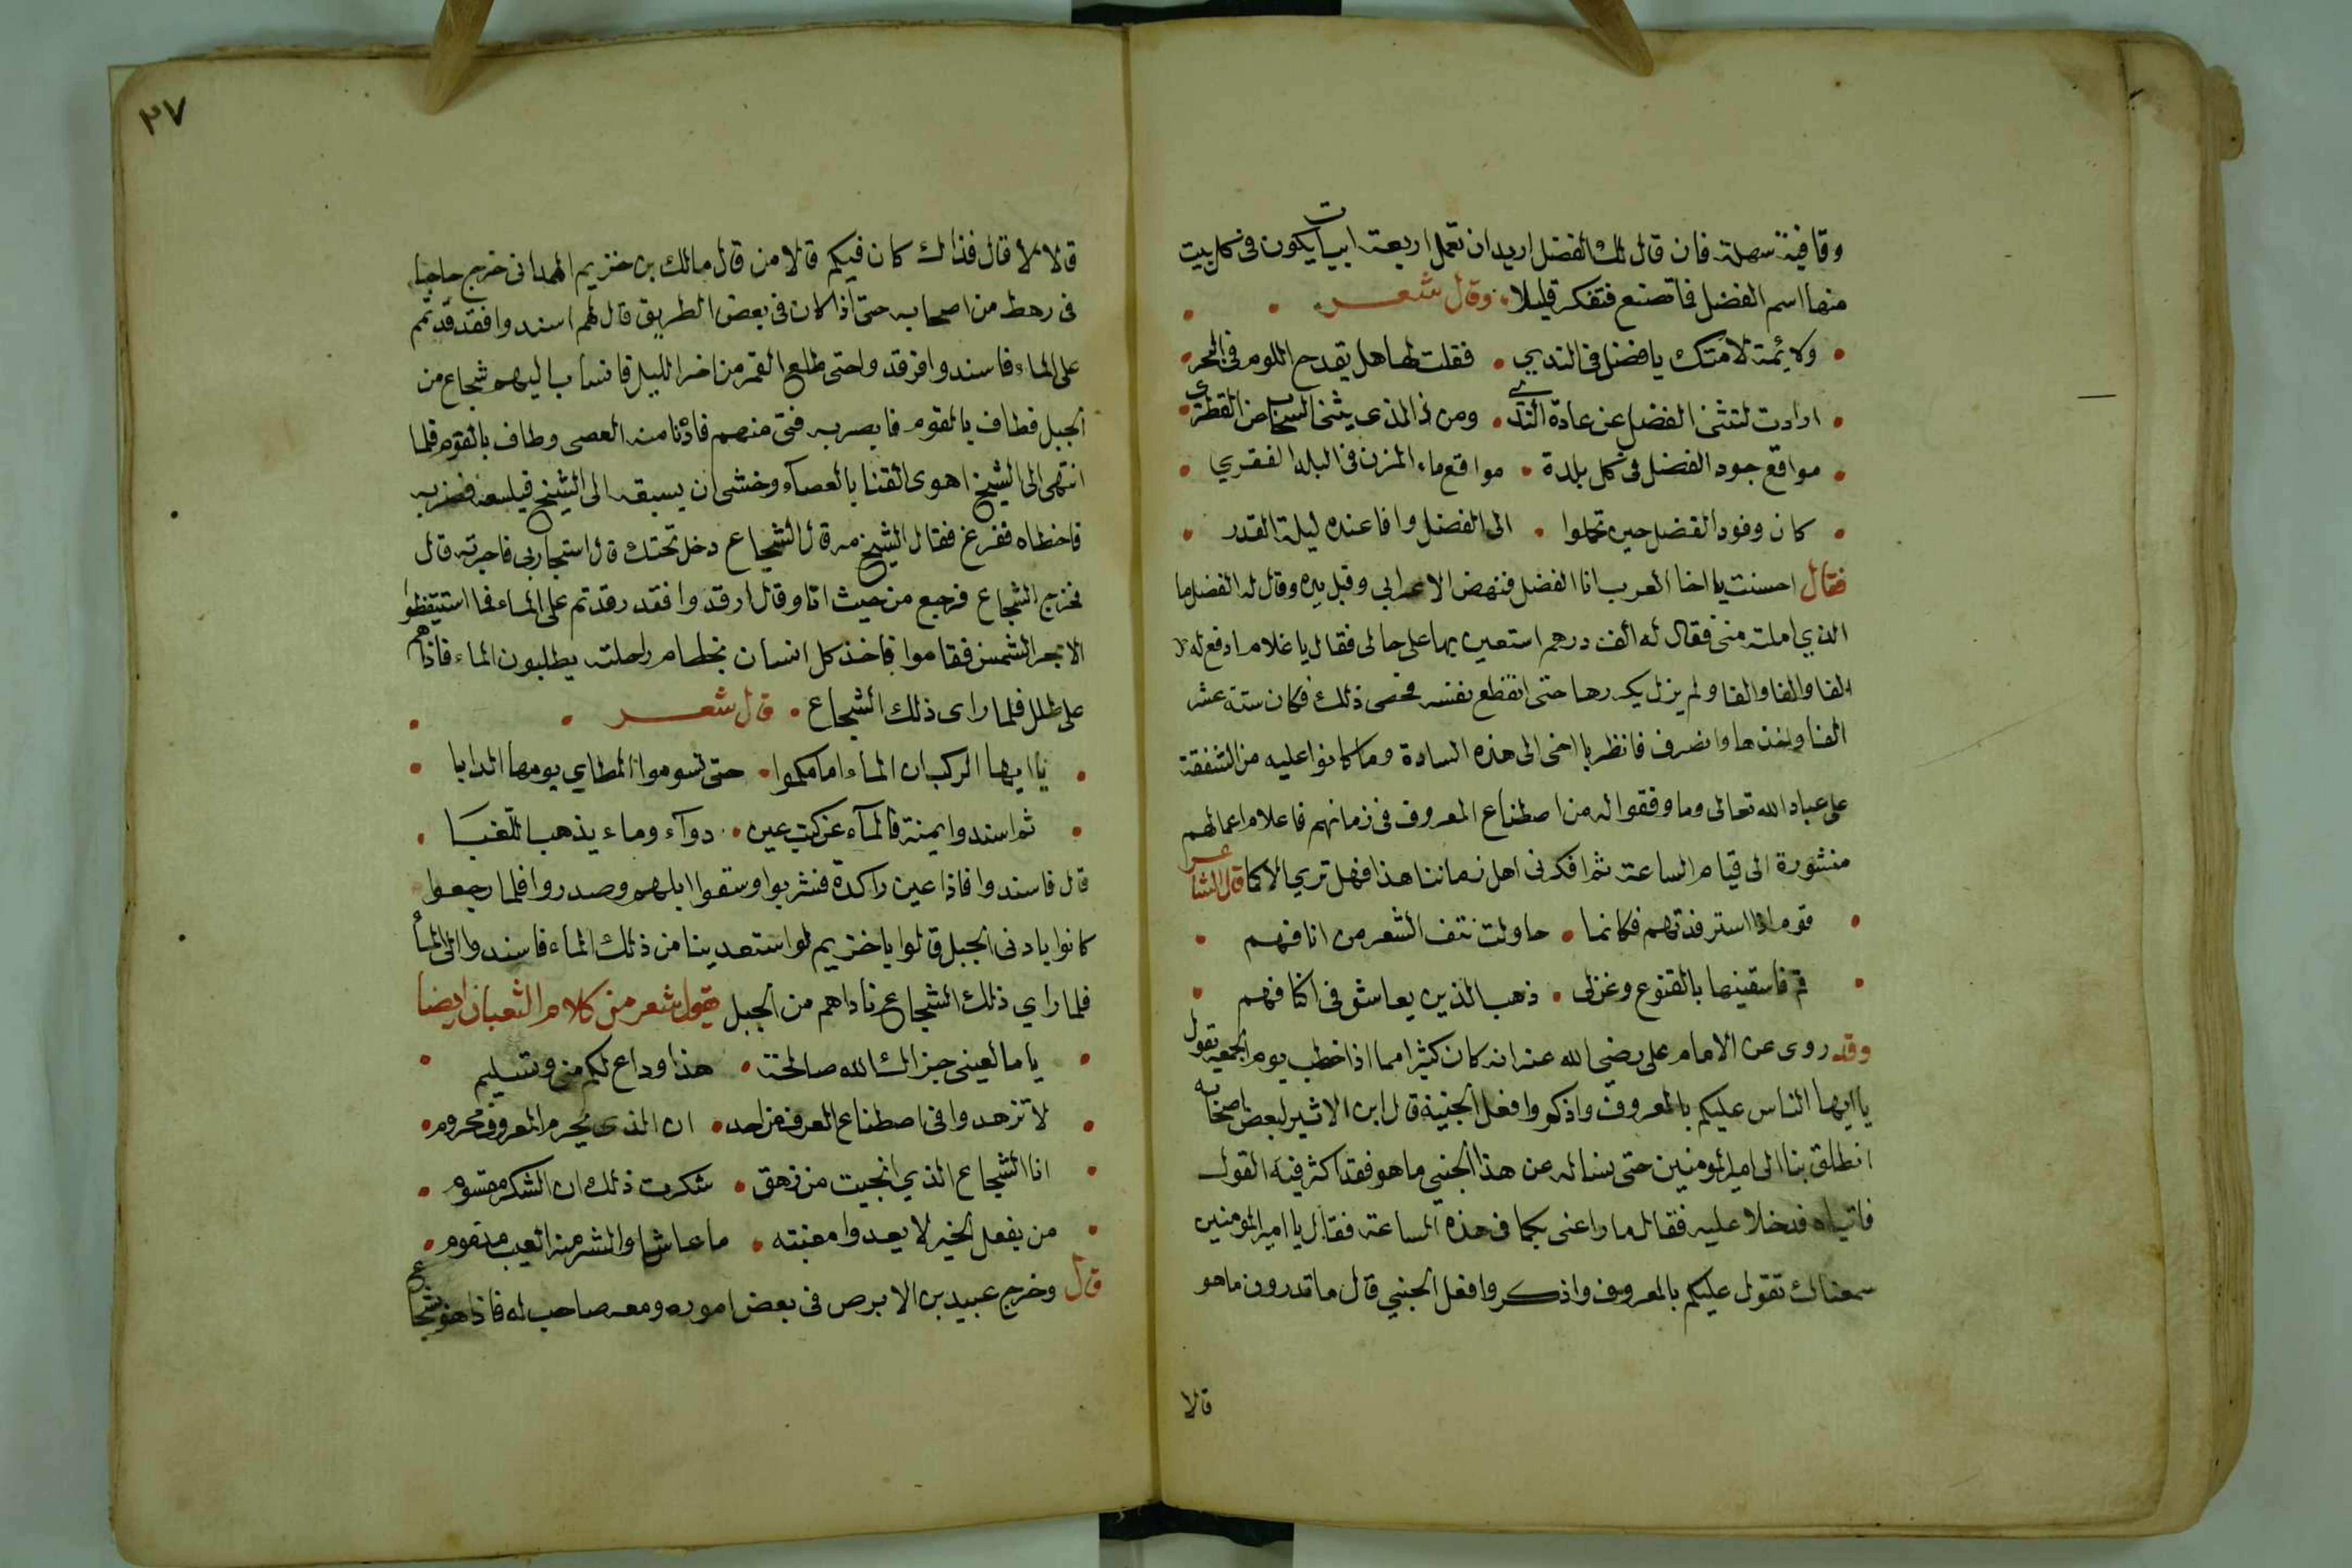 وقافية سهلة فان قال لك الفضل اريد ان تعمل اربعة ابيات يكون في كل بيت
منها اسم الفضل فاتصنع فتفكر قليلا وقال شعر
ولائمة لامتك يا فضل في الندي • فقلت لها هل يقدح اللوم في البحر
ارادت لتثني الفضل عن عادة الندي • ومن ذا الذي يثني السحاب عن القطر
مواقع جود الفضل في كل بلدة • مواقع ماء المزن في البلد القفري
كان وفود الفضل حين تحملوا • الى الفضل وافا عنده ليلة القدر
فقال احسنت يا اخا العرب انا الفضل فنهض الاعرابي وقبل يده وقال له الفضل ما
الذي املته مني فقال له الف درهم استعين بها على حالى فقال يا غلام ادفع له
الفا والفا والفا ولم يزل يكررها حتى انقطع نفسه فحصى ذلك فكان ستة عشر
الفا واخذها وانصرف فانظر يا اخى الى هذه السادة وما كانوا عليه من الشفقة
على عباد الله تعالى وما وفقوا له من اصطناع المعروف في زمانهم فاعلام اعمالهم
منشورة الى قيام الساعة ثم افكر في اهل زماننا هذا فهل تري الا كما قال الشاعر
قوم اذا استرفدتهم فكانما • حاولت نتف الشعر من انافهم
قم فاسقينها بالقنوع وغن لى • ذهب الذين يعاش في اكنافهم
وقد روى عن الامام على رضي الله عنه انه كان كثيرا مما اذا خطب يوم الجمعة يقول
يا ايها الناس عليكم بالمعروف واذكروا فعل الجنية قال ابن الاثير لبعض اصحابه
انطلق بنا الى امير المومنين حتى نساله عن هذا الجني ما هو فقد اكثر فيه القول
فاتياه فدخلا عليه فقال ما راعنى بكما في هذه الساعة فقال يا امير المومنين
سمعناك تقول عليكم بالمعروف واذكروا فعل الجني قال ما تدرون ما هو
قالا
٢٧
قالا لا قال فذالك كان فيكم قالا من قال مالك بن خزيم الهمداني خرج حاجا
في رهط من اصحابه حتى اذا كان في بعض الطريق قال لهم اسندوا فقد قدتم
على الماء فاسندوا فرقدوا حتى طلع القمر من اخر الليل فانساب اليهم شجاع من
الجبل فطاف بالقوم فابصر به فتى منهم فادنا منه العصى وطاف بالقوم فلما
انتهى الى الشيخ اهوى الفتا بالعصاء وخشى ان يسبقه الى الشيخ فيلسعه فضربه
فاخطاه ففزع فقال الشيخ مه قال الشجاع دخل تحتك قال استجار بي فاجرته قال
فخرج الشجاع فرجع من حيث اتا وقال ارقدوا فقد رقدتم على الماء فما استيقظوا
الا بحر الشمس فقاموا فاخذ كل انسان بخطام راحلته يطلبون الماء فاذا هم
على ظلل فلما راى ذلك الشجاع • قال شعر
يا ايها الركب ان الماء امامكموا • حتى تسوموا المطاي يومها الدابا
ثم اسندوا يمنة فالمآء عن كثب عين • دوآء وماء يذهب اللغبا
قال فاسندوا فاذا عين راكدة فشربوا وسقوا ابلهم وصدروا فلما رجعوا
كانوا بادنى الجبل قالوا يا خزيم لو استعدينا من ذلك الماء فاسندوا الى الماء
فلما راي ذلك الشجاع ناداهم من الجبل يقول شعر من كلام الثعبان ايضا
يا مالعينى جزاك الله صالحة • هذا وداع لكم مني وتسليم
لا تزهدوا في اصطناع العرف من احد • ان الذى يحرم المعروف محروم
انا الشجاع الذي انجيت من زهق • شكرت ذلك ان الشكر مقسوم
من يفعل الخير لا يعدوا مغبته • ما عاش والشر منه العيب مذموم
قال وخرج عبيد بن الابرص في بعض اموره ومعه صاحب له فاذا هو بشجاع